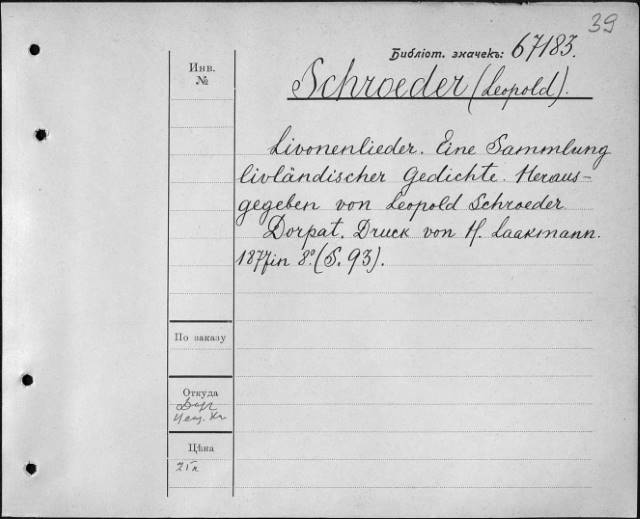 39
Библіот. значекъ: 67183.
Инв.
№
Schroeder (Leopold).
Livonenlieder. Eine Sammlung
livländischer Gedichte. Heraus-
gegeben von Leopold Schroeder
Dorpat. Druck von H. Laakmann.
1877 in 8º. (S. 93).
По заказу
Откуда
Цѣна